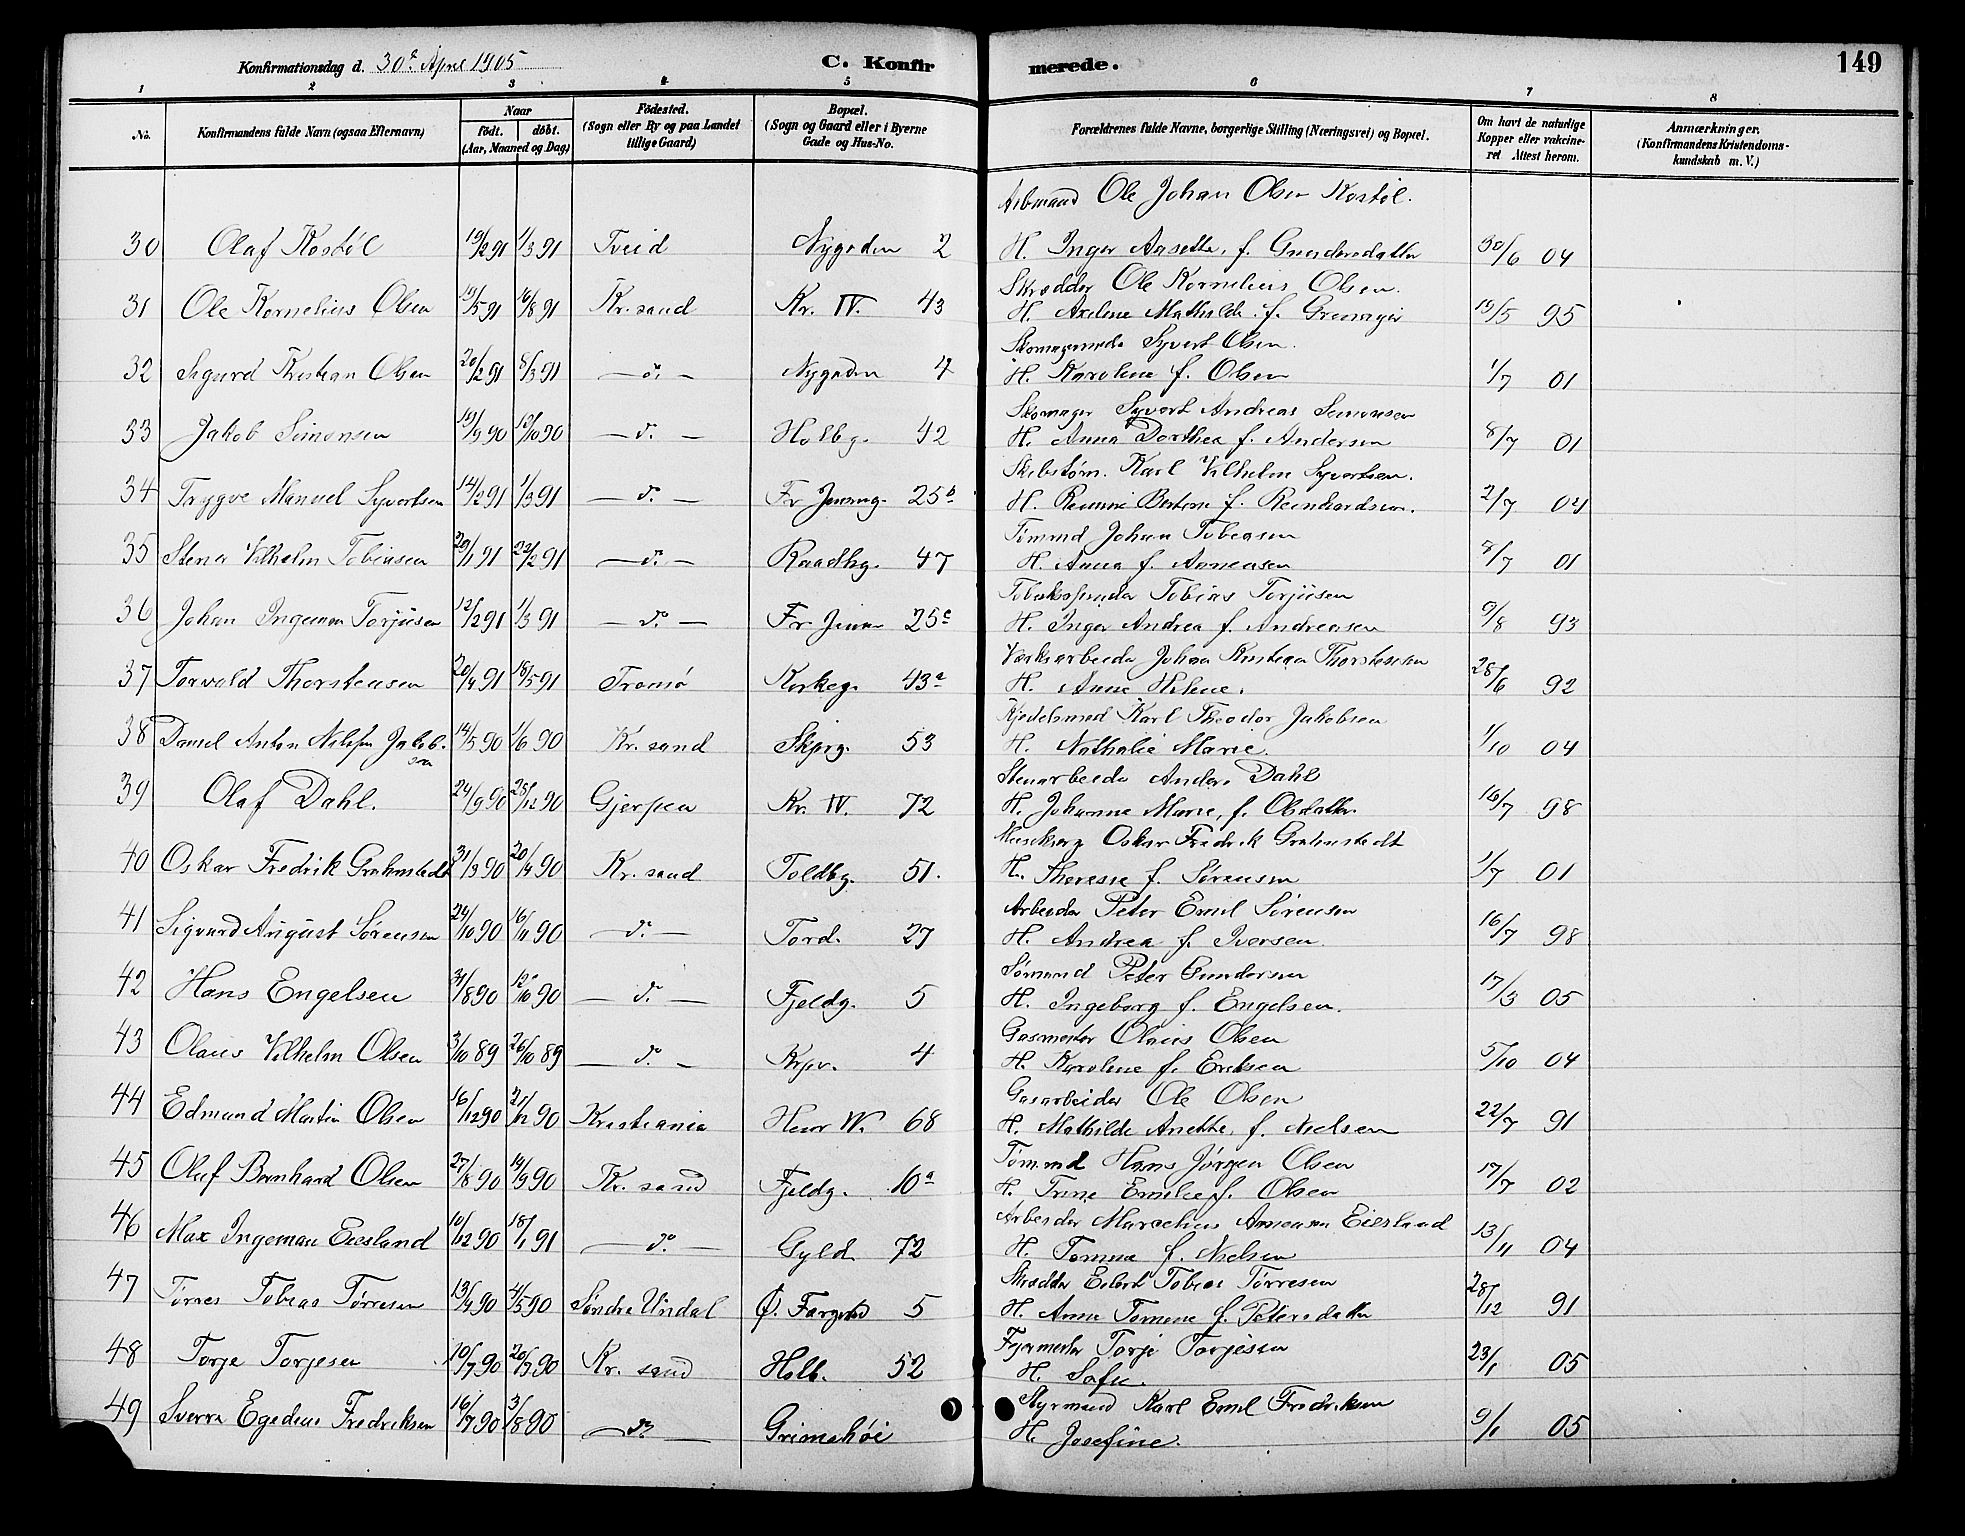 Konfirmationsdag d. 30te April 1905 C. Konfirmerede. 149
1 2 3 4 5 6 7 8
No. Konfirmandens fulde Navn (ogsaa Efternavn) Naar Födested. Bopæl. Forældrenes fulde Navne, borgerlige Stilling (Næringsvei) og Bopæl. Om havt de naturlige Anmærkninger.
født. døbt. (Sogn eller By og paa Landet (Sogn og Gaard eller i Byerne Kopper eller vakcine- (Konfirmandens Kristendoms-
(Aar, Maaned og Dag) tillige Gaard) Gade og Hus-No. ret Attest herom. kundskab m. V.)
Arbmand Ole Johan Olsen Kostøl.
30 Olaf Kostøl 19/2 91 1/3 91 Tveid Nygaden 2 H. Inger Aasette, f. Gundersdatter 30/6 04
Skrædder Ole Kornelius Olsen.
31 Ole Kornelius Olsen 19/5 91 16/8 91 Kr. sand Kr. IV. 43 H. Axeline Mathilde f. 19/5 95
Syvert Olsen.
32 Sigurd Kristian Olsen 20/2 91 8/3 91 — do. — Nygaden 4 H. Karoline f. Olsen 1/7 01
Skomager Syvert Andreas Simonsen
33 Jakob Simonsen 19/9 90 12/10 90 — do. — Holbg. 42 H. Anna Dorthea f. Andersen 8/7 01
Skibstøm. Karl Vilhelm Syvertsen.
34 Trygve Manuel Syvertsen 14/2 91 1/3 91 — do. — Fr 25b H. f. Reinhardsen. 2/7 04
Tømmd Johan Tobiasen
35 Vilhelm Tobiasen 20/1 91 22/2 91 — do. — Raadhg. 47 H. Anna f. Aanensen 8/7 01
Tobias Torjusen
36 Johan Ingeman Torjusen 12/2 91 1/3 91 — do. — Fr 25c H. Inger Andrea f. Andreasen 9/8 93
Værksarbeider Johan Kristian Thorstensen
37 Torvald Thorstensen 20/4 91 18/5 91 Tromsø Kirkeg. 43a H. Anne Helene. 28/6 92
Kjedelsmed Karl Theodor Jakobsen
38 Daniel Anton Nilsen Jakob- 14/5 90 1/6 90 Kr. sand Skipsg. 53 H. Nathalie Marie. 1/10 04
sen
Stenarbeider Anders Dahl
39 Olaf Dahl. 24/9 90 25/12 90 Gjerpen Kr. IV. 72 H. Johanne Marie, f. Olsdatter. 16/7 98
Oskar Fredrik Grahnstedt
40 Oskar Fredrik Grahnstedt 31/3 90 20/4 90 Kr. sand Toldbg. 51. H. Therese f. Sørensen 1/7 01
Arbeider Peter Emil Sørensen
41 Sigvard August Sørensen 24/10 90 16/11 90 — do. — Tord. 27 H. Andrea f. Iversen. 16/7 98
Sømand Peter Gundersen
42 Hans Engelsen 31/8 90 12/10 90 — do. — Fjeldg. 5 H. Ingeborg f. Engelsen. 17/3 05
Gasmester Olaus Olsen
43 Olaus Vilhelm Olsen 3/10 89 26/10 89 — do. — Krpv. 4 H. Karoline f. Eriksen 5/10 04
Gasarbeider Ole Olsen
44 Edmund Martin Olsen 16/12 90 21/12 90 Kristiania Henr W. 68 H. Mathilde Anette, f. Nielsen 22/7 91
Tømmd Hans Jørgen Olsen
45 Oluf Bernhard Olsen 27/8 90 14/9 90 Kr. sand Fjeldg. 10a H. Trine Emilie f. Olsen 17/7 02
Arbeider Marcelius Aanensen Eiesland
46 Max Ingeman Eiesland 10/12 90 18/1 91 — do. — Gyld. 72 H. Tomine f. Nielsen 13/11 04
Skrædder Eilert Tobias Tørresen
47 Tørres Tobias Tørresen 13/4 90 4/5 90 Søndre Undal Ø. 5 H. Anne Tomine f. Petersdatter 28/12 91
Fyrmester Torje Torjesen
48 Torje Torjesen 10/7 90 20/7 90 Kr. sand Holb. 52 H. Sofie. 23/1 05
Styrmand Karl Emil Fredriksen
49 Sverre Egedius Fredriksen 16/7 90 3/8 90 — do — Grimshøi H. Josefine. 9/1 05